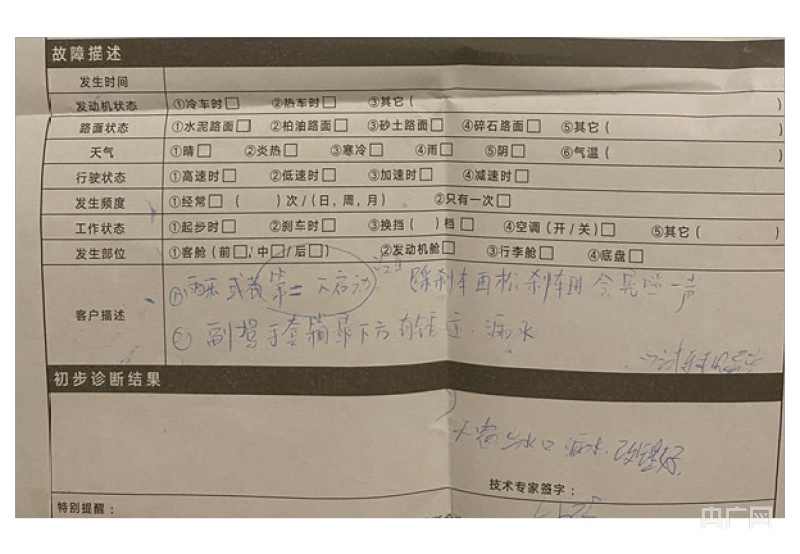 故障描述
发生时间
发动机状态 ①冷车时□ ②热车时□ ③其它( )
路面状态 ①水泥路面□ ②柏油路面□ ③砂土路面□ ④碎石路面□ ⑤其它( )
天气 ①晴□ ②炎热□ ③寒冷□ ④雨□ ⑤阴□ ⑥气温( )
行驶状态 ①高速时□ ②低速时□ ③加速时□ ④减速时□
发生频度 ①经常□ ( )次/(日,周,月) ②只有一次□
工作状态 ①起步时□ ②刹车时□ ③换挡( )档□ ④空调(开/关)□ ⑤其它( )
发生部位 ①客舱(前□/中□/后□) ②发动机舱□ ③行李舱□ ④底盘□
客户描述 或者第二天启动 踩刹车再松刹车时会 一声
副驾手套箱最下方有锈迹、漏水
初步诊断结果
天窗出水口漏水,已处理好.
技术专家签字:
特别提醒:
央广网